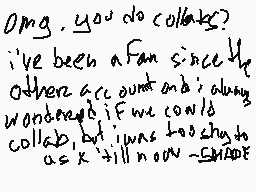 omg. you do collabs?
i've been a fan since the
others account and i always
wondered if we could
collab, but i was too shy to
ask 'till now ~SHADE